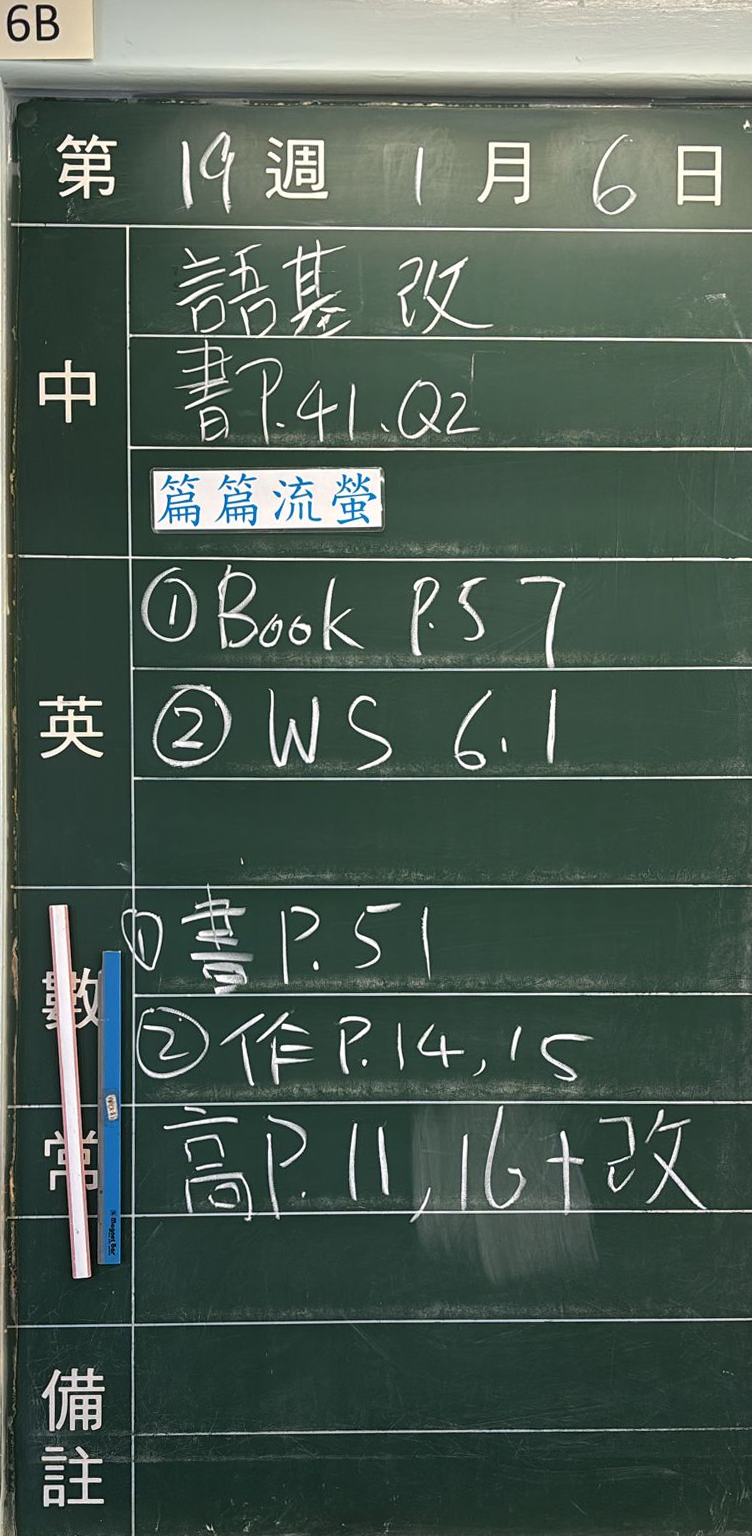 6B
第 19 週 1 月 6 日
中
語基 改
書P.41、Q2
篇篇流螢
英
① Book P.57
② WS 6.1
數
① 書 P.51
② 作 P.14, 15
常
高P.11, 16+改
備註